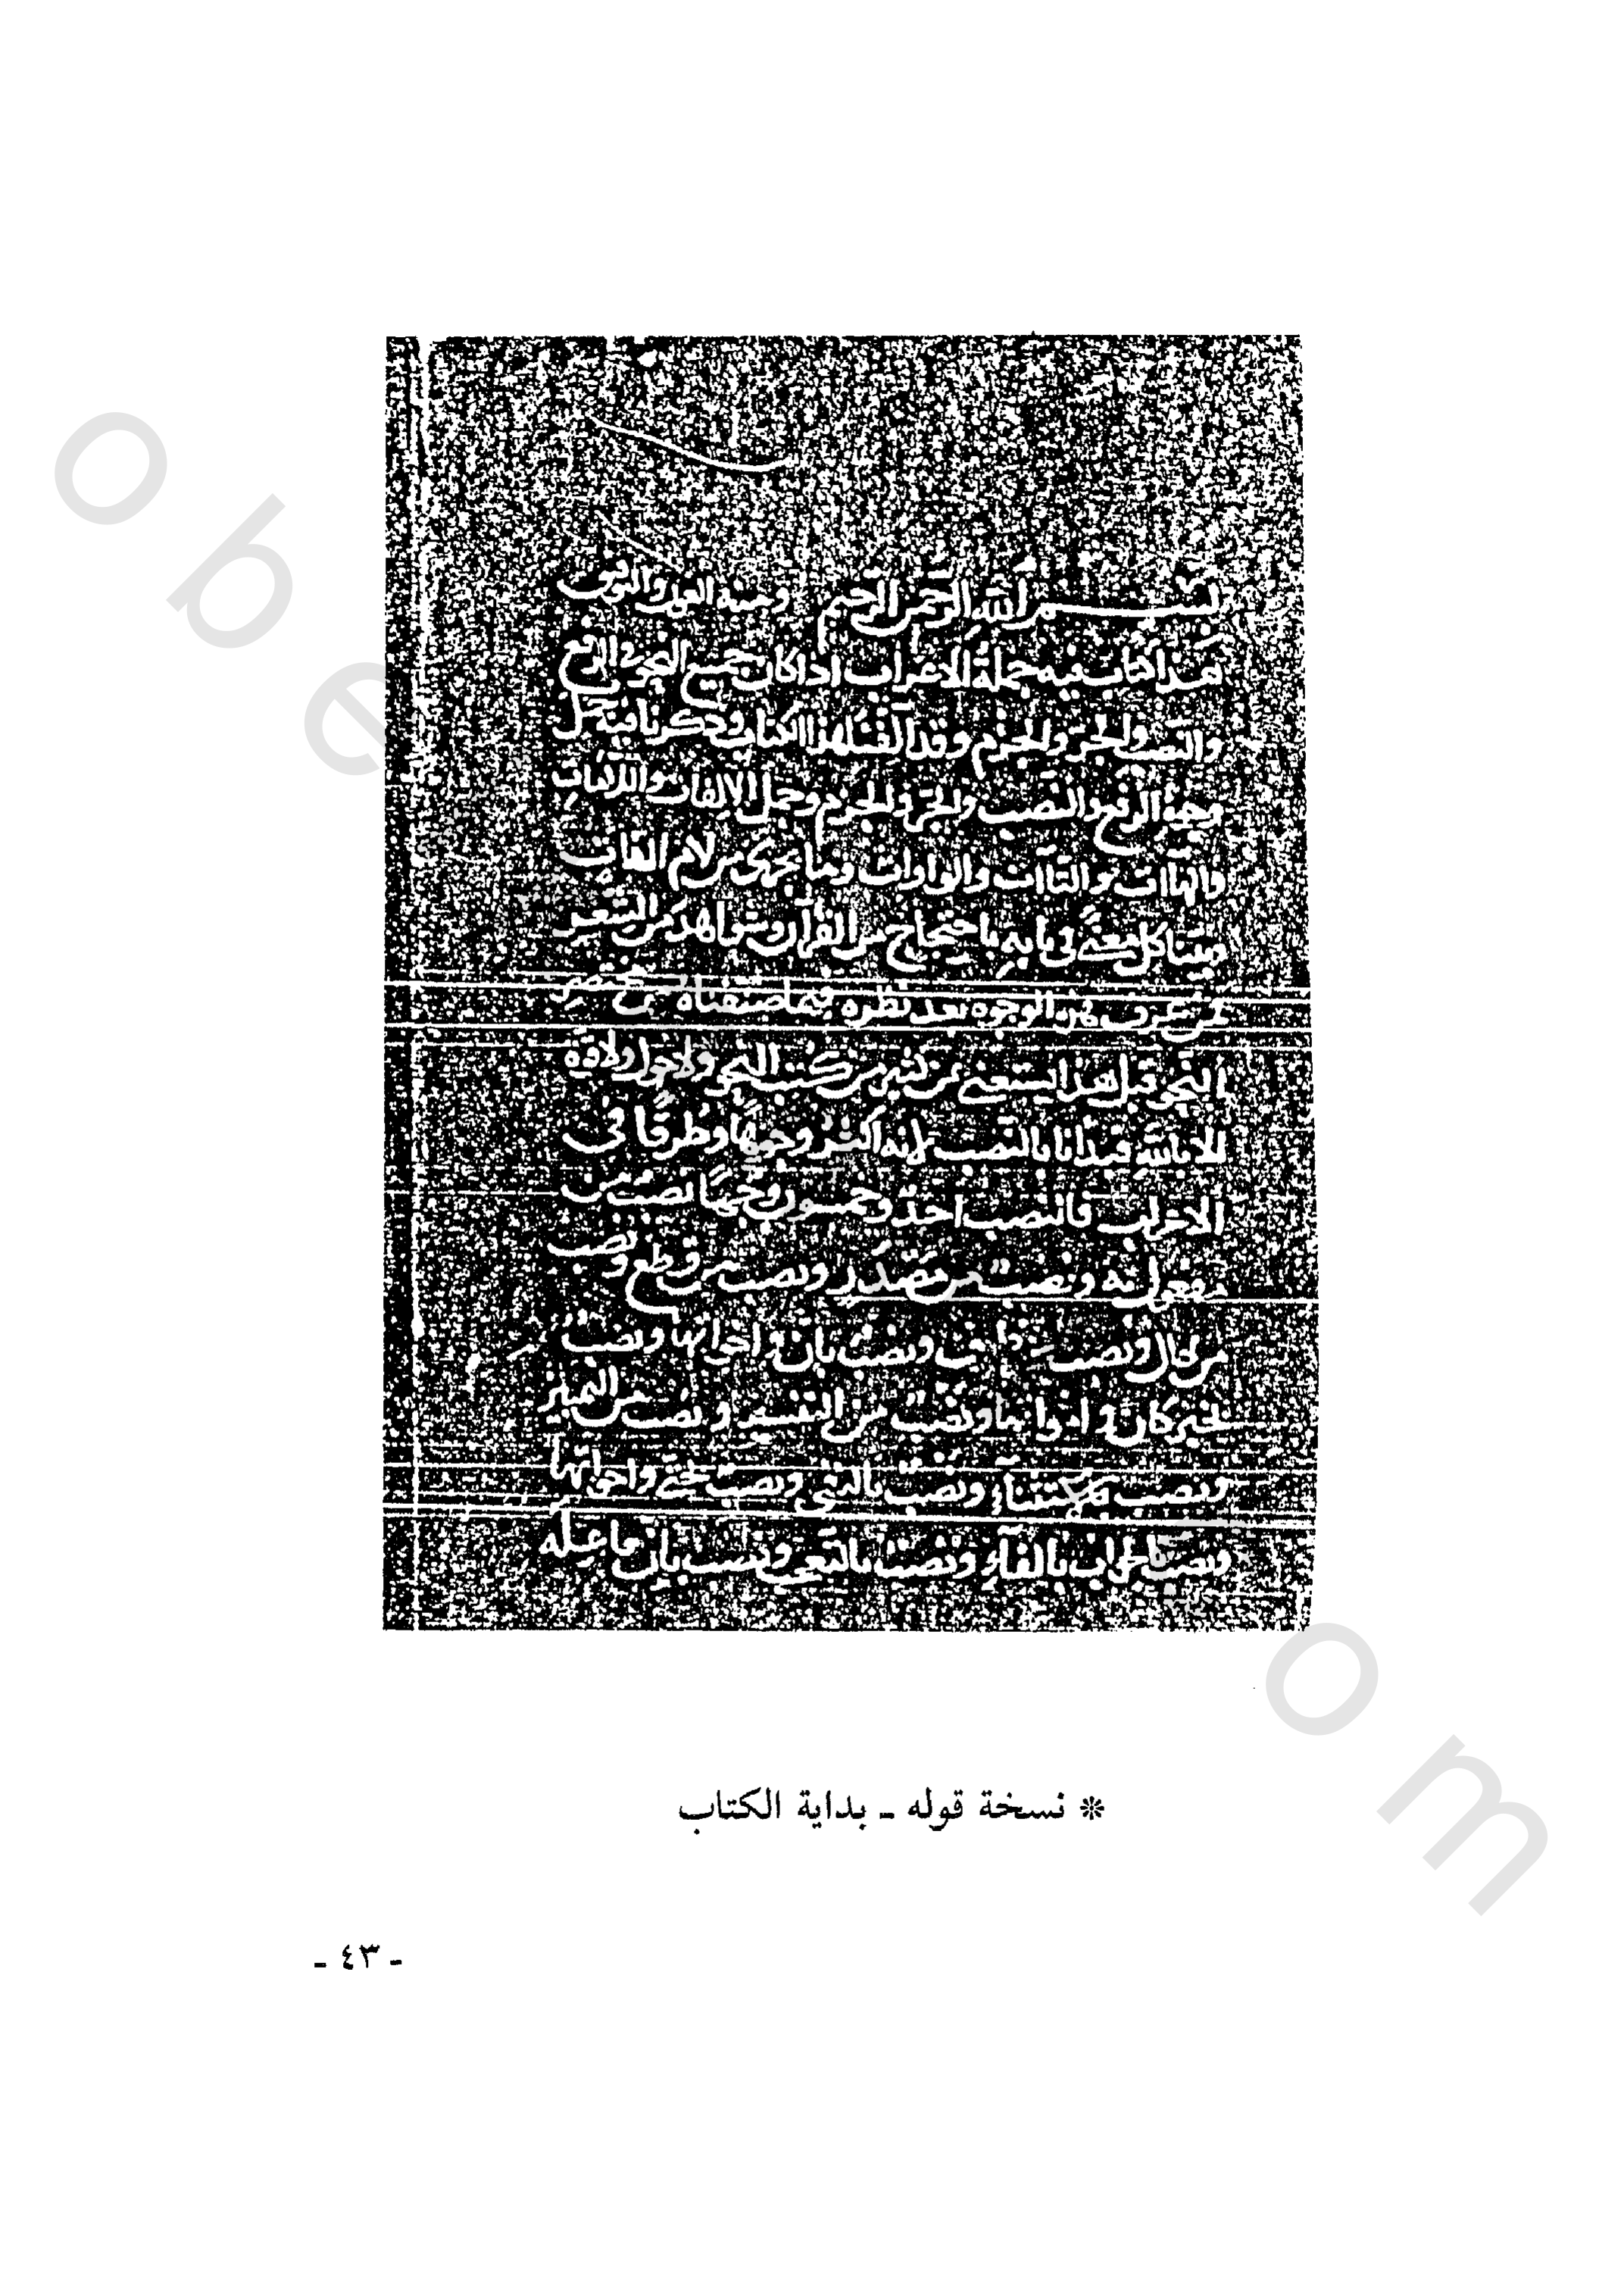 بسم الله الرحمن الرحيم ومنه العون والتوفيق
هذا كتاب فيه جملة الاعراب اذا كان جميع النحو في الرفع
والنصب والجر والجزم وقد الفنا هذا الكتاب وذكرنا فيه جمل
وجوه الرفع والنصب والجر والجزم وجمل الالفات واللامات
والهاات والتاات والواوات وما يجري من لام الفات
وبينا كل معنى في بابه باحتجاج من القرآن وشواهد من الشعر
فمن عرف هذه الوجوه بعد نظره فيما صنفناه من مختصر
النحو قبل هذا استغنى عن كثير من كتب النحو ولا حول ولا قوة
الا بالله فبدأنا بالنصب لانه اكثر وجوها وطرقا في
الاعراب فالنصب احد وخمسون وجها نصب من
مفعول به ونصب من مصدر ونصب من قطع ونصب
من حال ونصب من ونصب بان واخواتها ونصب
بخبر كان واخواتها ونصب من التفسير ونصب من التمييز
ونصب بالاستثناء ونصب بالنفي ونصب بحتى واخواتها
ونصب بالجواب بالفاء ونصب بالتعجب ونصب بان فاعله
* نسخة قوله - بداية الكتاب
- ٤٣ -
obe
om